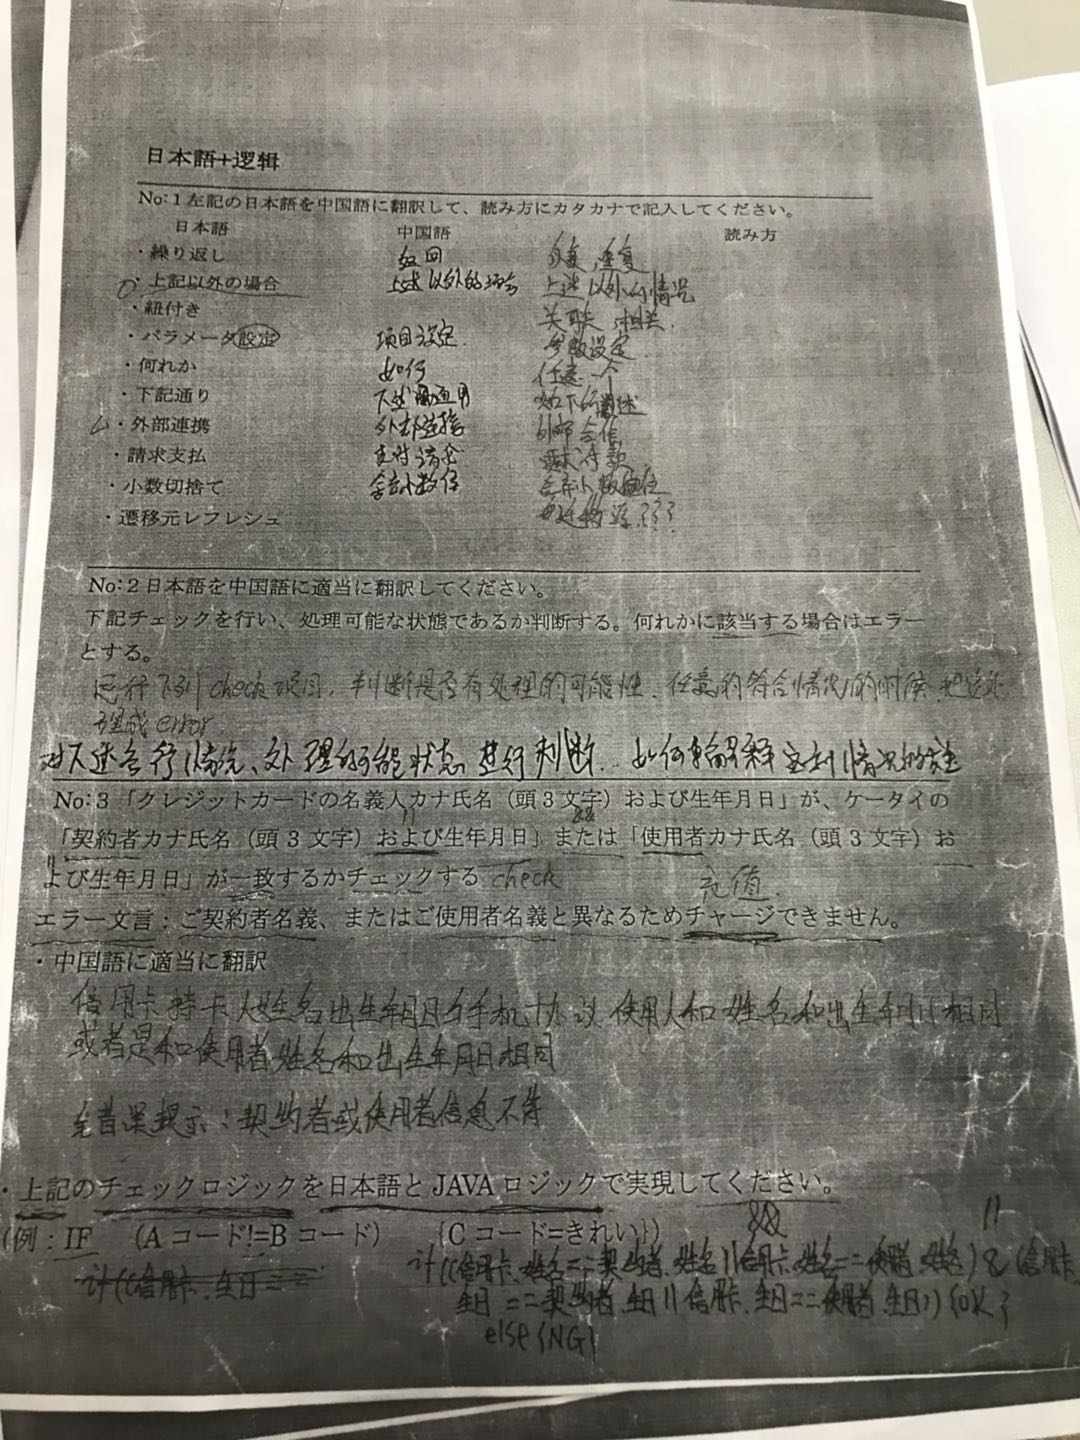 日本語+逻辑
No:1 左記の日本語を中国語に翻訳して、読み方にカタカナで記入してください。
日本語 中国語 読み方
・繰り返し 返回 重复
・上記以外の場合 上述以外的场合 上述以外的情况
・紐付き 关联 相关.
・パラメータ設定 项目设定. 参数设定
・何れか 如何 任意一个
・下記通り 如下所述
・外部連携 外部连接 外部合作
・請求支払 支付 付款
・小数切捨て 舍去小数位 舍弃小数
・遷移元レフレシュ ???
No:2 日本語を中国語に適当に翻訳してください。
下記チェックを行い、処理可能な状態であるか判断する。何れかに該当する場合はエラー
とする。
运行下列check项目,判断是否有处理的可能性.任意的符合情况的时候.把这处
理成error.
对下述 情况、处理的可能状态进行判断. 如何 情况的话
No:3「クレジットカードの名義人カナ氏名（頭3文字）および生年月日」が、ケータイの
|| &&
「契約者カナ氏名（頭3文字）および生年月日」または「使用者カナ氏名（頭3文字）お
よび生年月日」が一致するかチェックする check 充值.
エラー文言：ご契約者名義、またはご使用者名義と異なるためチャージできません。
・中国語に適当に翻訳
信用卡持卡人姓名出生年月日与手机协议使用人和姓名和出生年月日相同
或者是和使用者姓名和出生年月日相同
提示:契约者或使用者信息不符
・上記のチェックロジックを日本語と JAVA ロジックで実現してください。
(例：IF (A コード!=B コード) {C コード=きれい}) && ||
if((信用卡.姓名==契约者.姓名||信用卡.姓名==使用者.姓名)&(信用卡.
if((信用卡.生日==
生日==契约者.生日||信用卡.生日==使用者.生日)){OK}
else{NG}